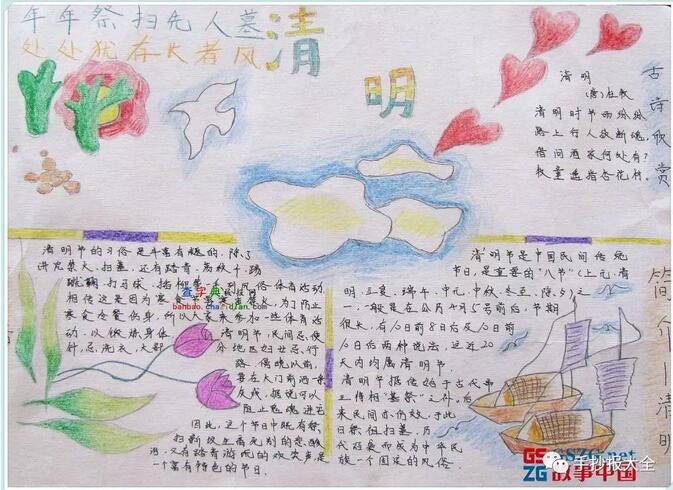 年年祭扫先人墓
处处犹存长者风
清
明
清明
(唐)杜牧
清明时节雨纷纷
路上行人欲断魂。
借问酒家何处有?
牧童遥指杏花村。
古诗欣赏
清明节的习俗是丰富有趣的,除了
讲究禁火、扫墓,还有踏青、荡秋千、踢
蹴鞠、打马球、插柳等一系列风俗体育活动
相传这是因为寒食节要寒食禁火,为了防止
寒食冷餐伤身,所以大家来参加一些体育活
动,以锻炼身体
清明节,民间忌使
针,忌洗衣,大部
分地区妇女忌行
路。傍晚以前,
要在大门前洒一条
灰线,据说可以
阻止鬼魂进宅
因此,这个节日中既有祭
扫新坟生离死别的悲酸
泪,又有踏青游玩的欢笑声是
一个富有特色的节日.
查字典
banbao.chazidian.com
清明节是中国民间传统
节日,是重要的"八节"(上元、清
明、立夏、端午、中元、中秋、冬至、除夕)之
一,一般是在公历4月5号前后,节期
很长,有10日前8日后及10日前
10日后两种说法,这近20
天内均属清明节.
清明节据传始于古代帝
王将相"墓祭"之礼,后
来民间亦仿效,于此
日祭祖扫墓,历
代沿袭而成为中华民
族一个固定的风俗
简介—清明
GSZG.net
故事中国
手抄报大全